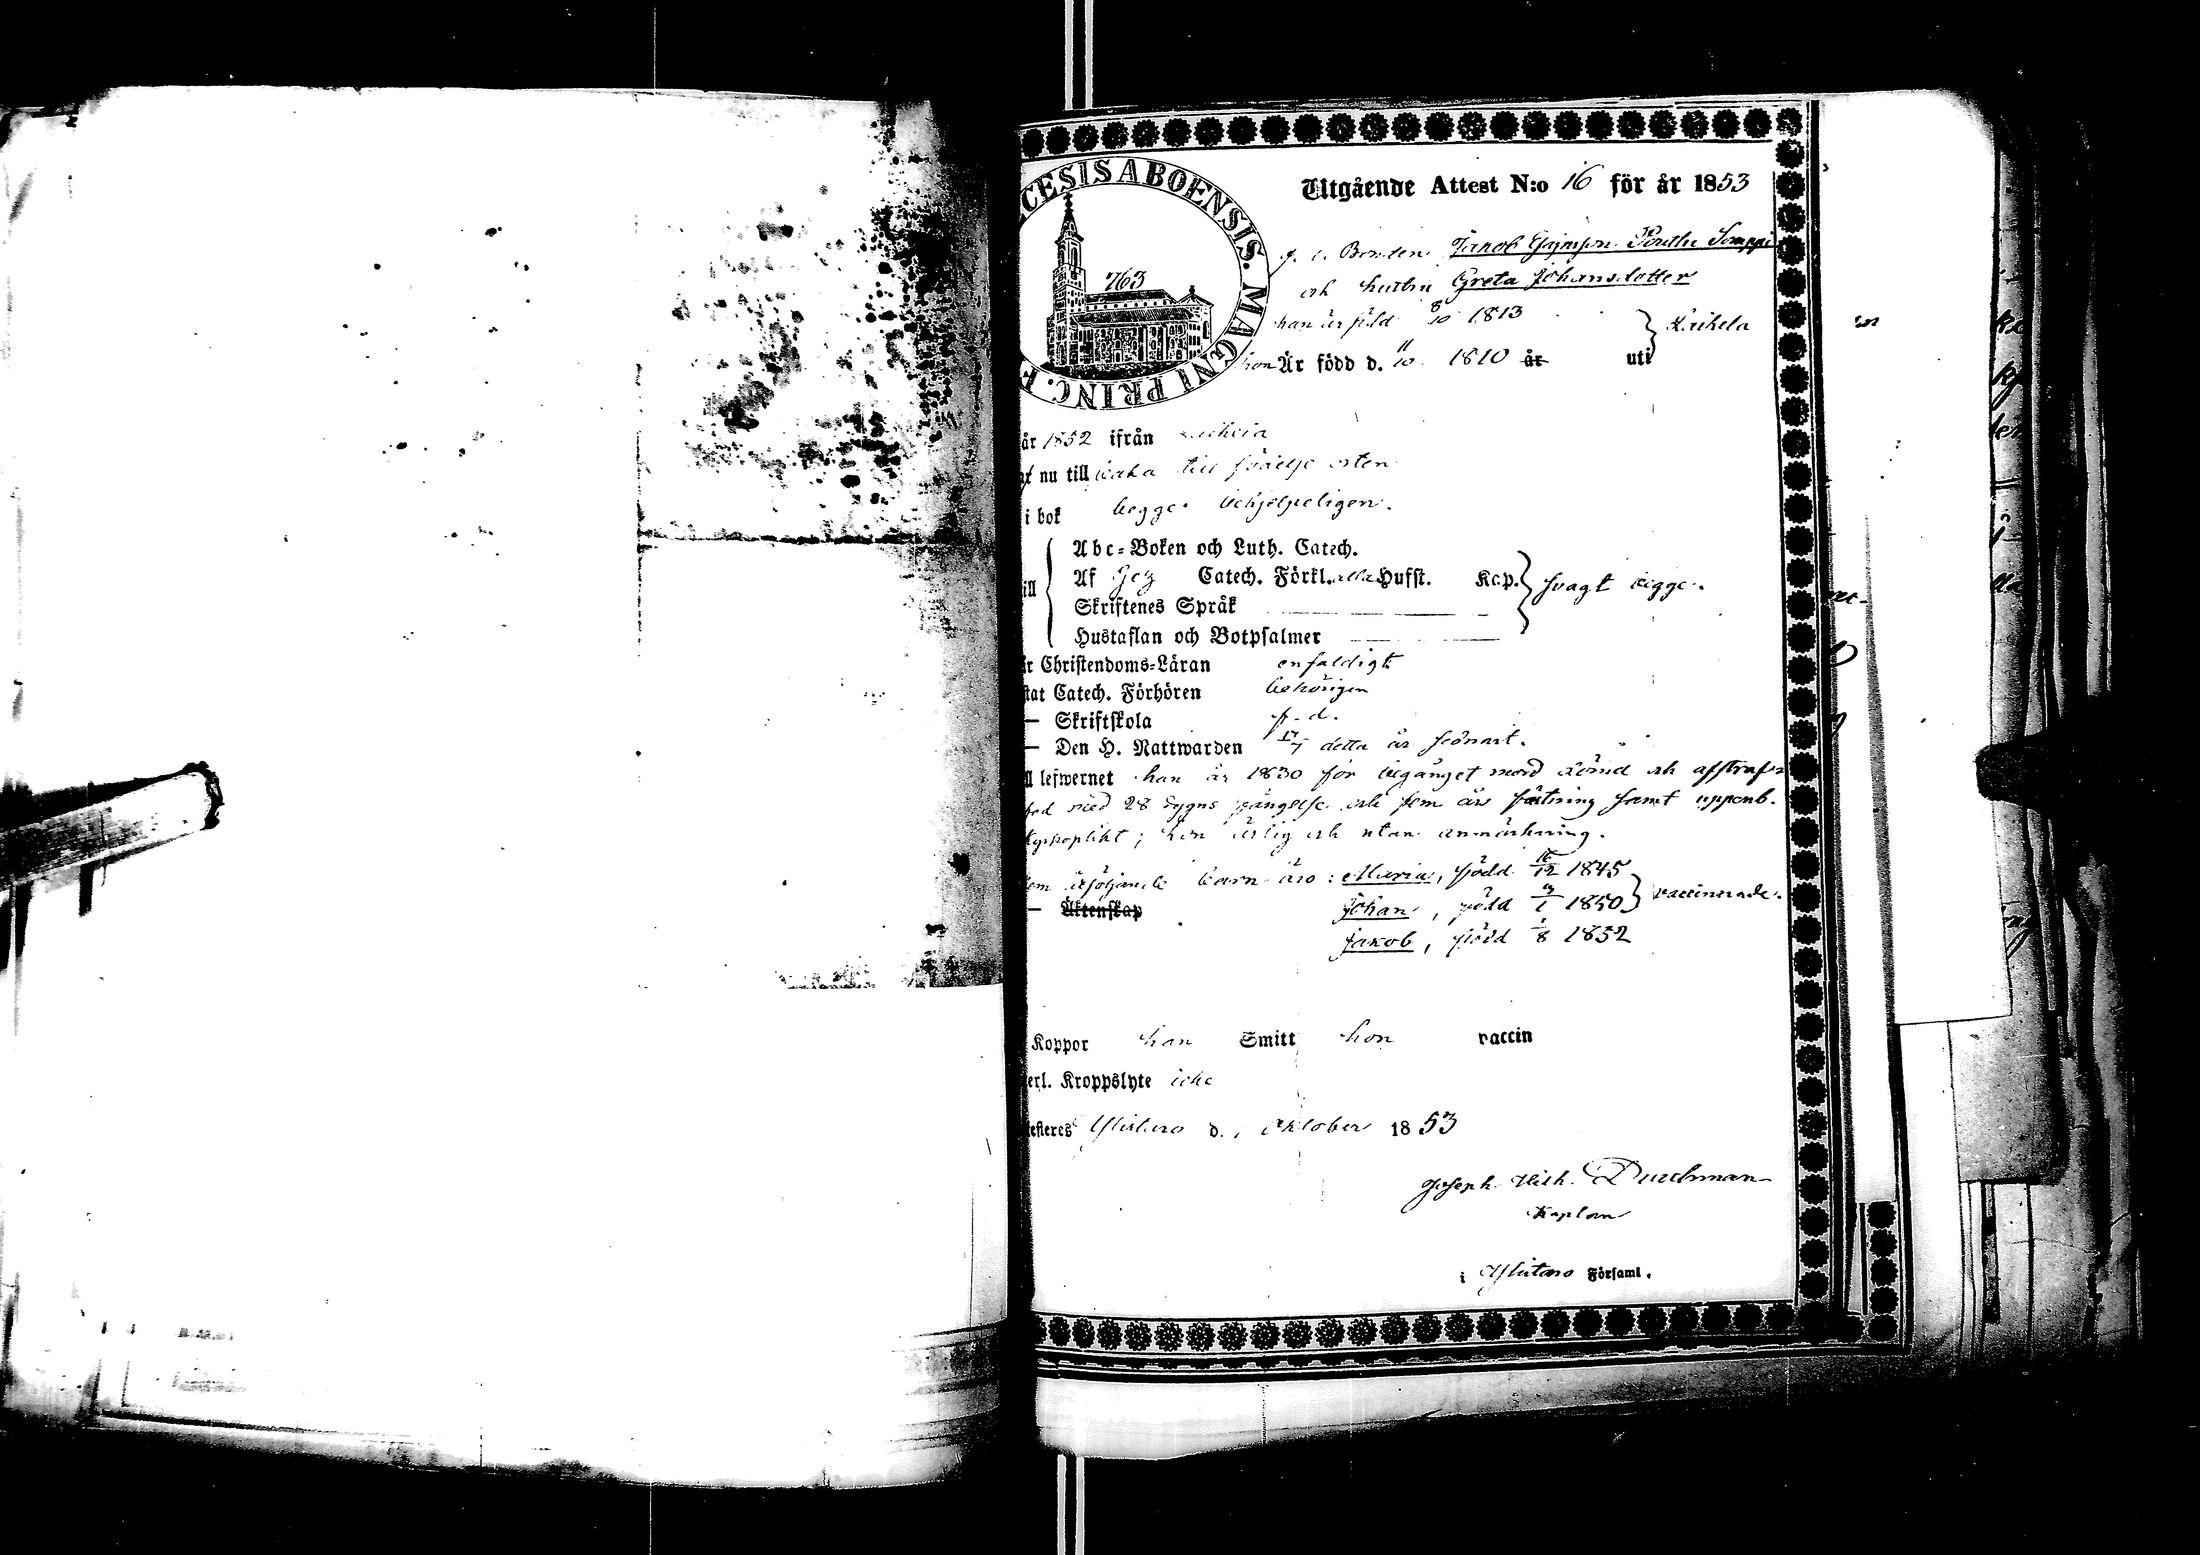 CESIS ABOENSIS. MAGNI PRINC. F
763
Utgående Attest N:o 16 för år 1853
f. d. Bonden Jakob
och hustru Greta Johansdotter
han är född 8/10 1813
hon Är född d. 11/10 1810 år uti
år 1852 ifrån
nu till baka till födelse orten
i bok begge behjelpeligen.
Abc-Boken och Luth. Catech.
Af Catech. Förkl. alla Hufst. Kap. svagt begge.
Skriftenes Språk
Hustaflan och Botpsalmer
Christendoms-Läran enfaldigt
Catech. Förhören behörigen
— Skriftskola f. d.
— Den H. Nattwarden detta år
lefwernet han år 1830 för begånget mord dömd och afstraf-
fad med 28 dygns fängelse och fem års samt uppenb.
kyrkoplikt; hon ärlig och utan anmärkning.
barn äro: Maria, född 16/12 1845
— Äktenskap Johan, född 1850 vaccinerade.
Jakob, född 1/8 1852
Koppor han Smitt hon vaccin
Kroppslyte icke
Ylistaro d. 1 Oktober 1853
Joseph Wilh. Durchman
Kaplan
i Ylistaro Församl.